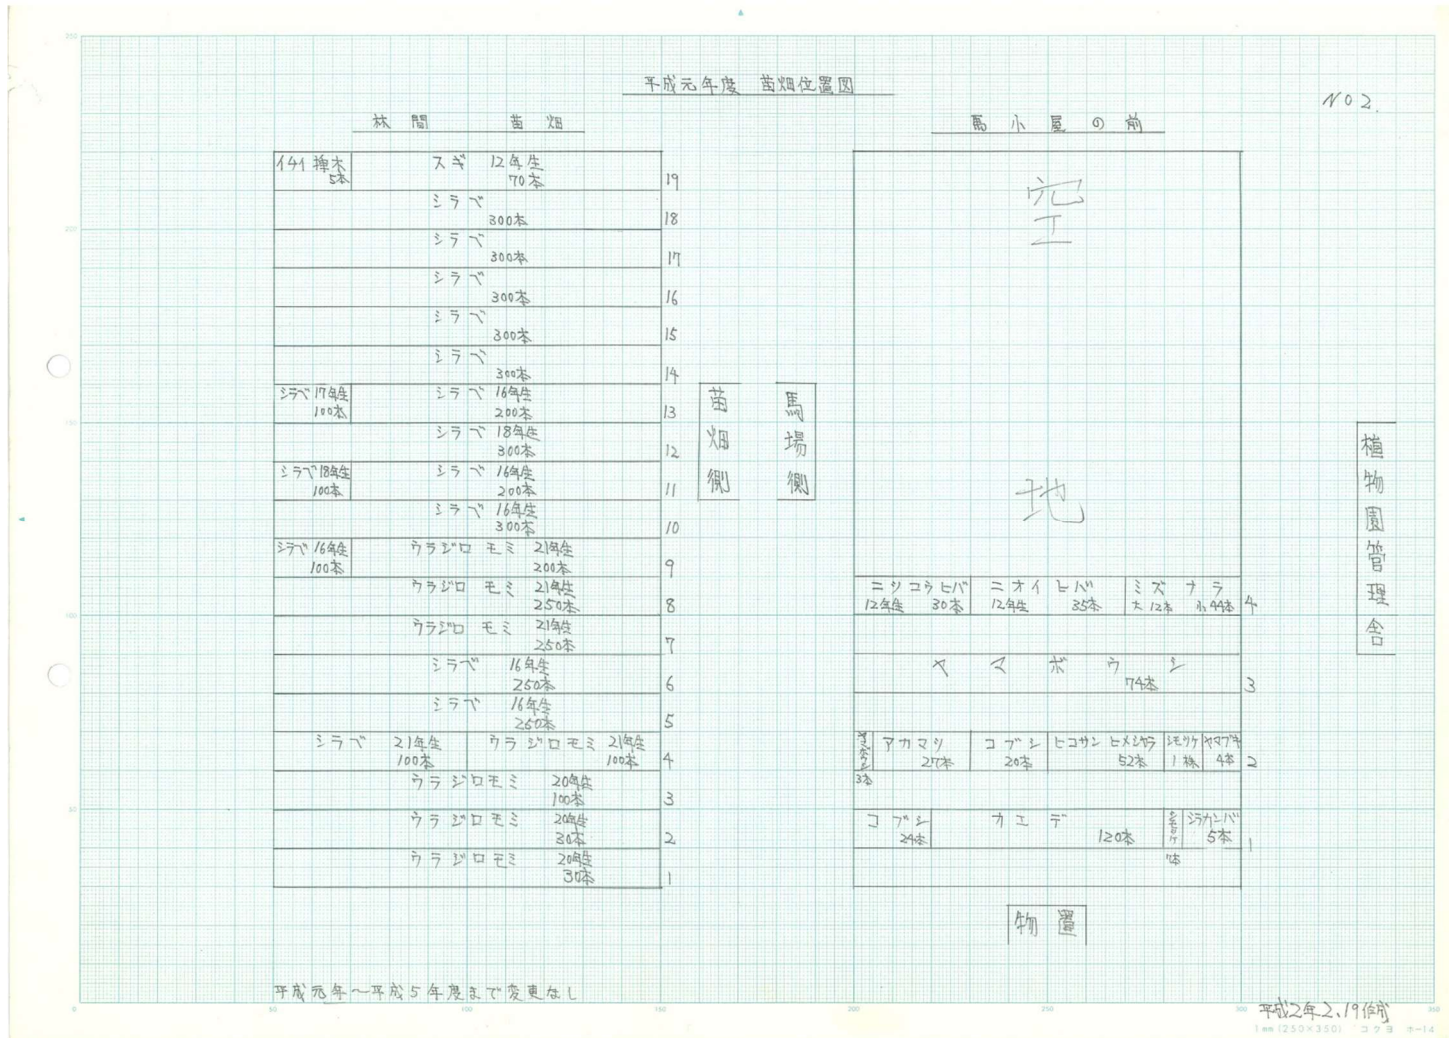 平成元年度 苗畑位置図
NO 2.
林間 苗畑
イチイ 挿木
5本
スギ 12年生
70本
19
シラベ
300本
18
シラベ
300本
17
シラベ
300本
16
シラベ
300本
15
シラベ
300本
14
シラベ 17年生
100本
シラベ 16年生
200本
13
シラベ 18年生
300本
12
シラベ 18年生
100本
シラベ 16年生
200本
11
シラベ 16年生
300本
10
シラベ 16年生
100本
ウラジロモミ 21年生
200本
9
ウラジロモミ 21年生
250本
8
ウラジロモミ 21年生
250本
7
シラベ 16年生
250本
6
シラベ 16年生
250本
5
シラベ 21年生
100本
ウラジロモミ 21年生
100本
4
ウラジロモミ 20年生
100本
3
ウラジロモミ 20年生
30本
2
ウラジロモミ 20年生
30本
1
苗畑側
馬場側
馬小屋の前
空地
ニッコウヒバ
12年生 30本
ニオイヒバ
12年生 35本
ミズナラ
大 12本 小 44本
4
ヤマボウシ
74本
3
3本
アカマツ
27本
コブシ
20本
ヒコサンヒメシャラ
52本
シモツケ
1株
ヤマブキ
4本
2
コブシ
24本
カエデ
120本
7本
シラカンバ
5本
1
物置
植物園管理舎
平成元年〜平成5年度まで変更なし
平成2年2.19作成
0
50
100
150
200
250
300
350
50
100
150
200
250
1mm(250×350) コクヨ ホ-14